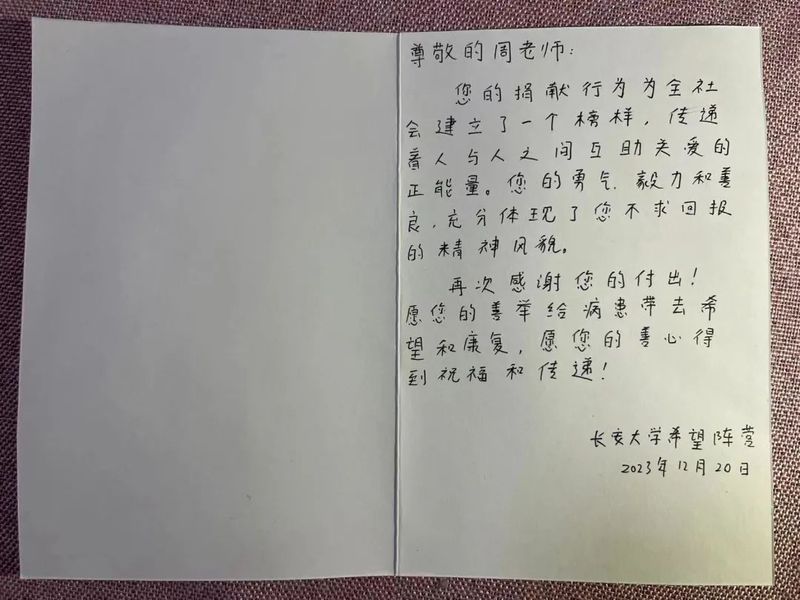 尊敬的周老师:
您的捐献行为为全社
会建立了一个榜样，传递
着人与人之间互助关爱的
正能量。您的勇气、毅力和善
良，充分体现了您不求回报
的精神风貌。
再次感谢您的付出！
愿您的善举给病患带去希
望和康复，愿您的善心得
到祝福和传递！
长安大学希望阵营
2023年12月20日